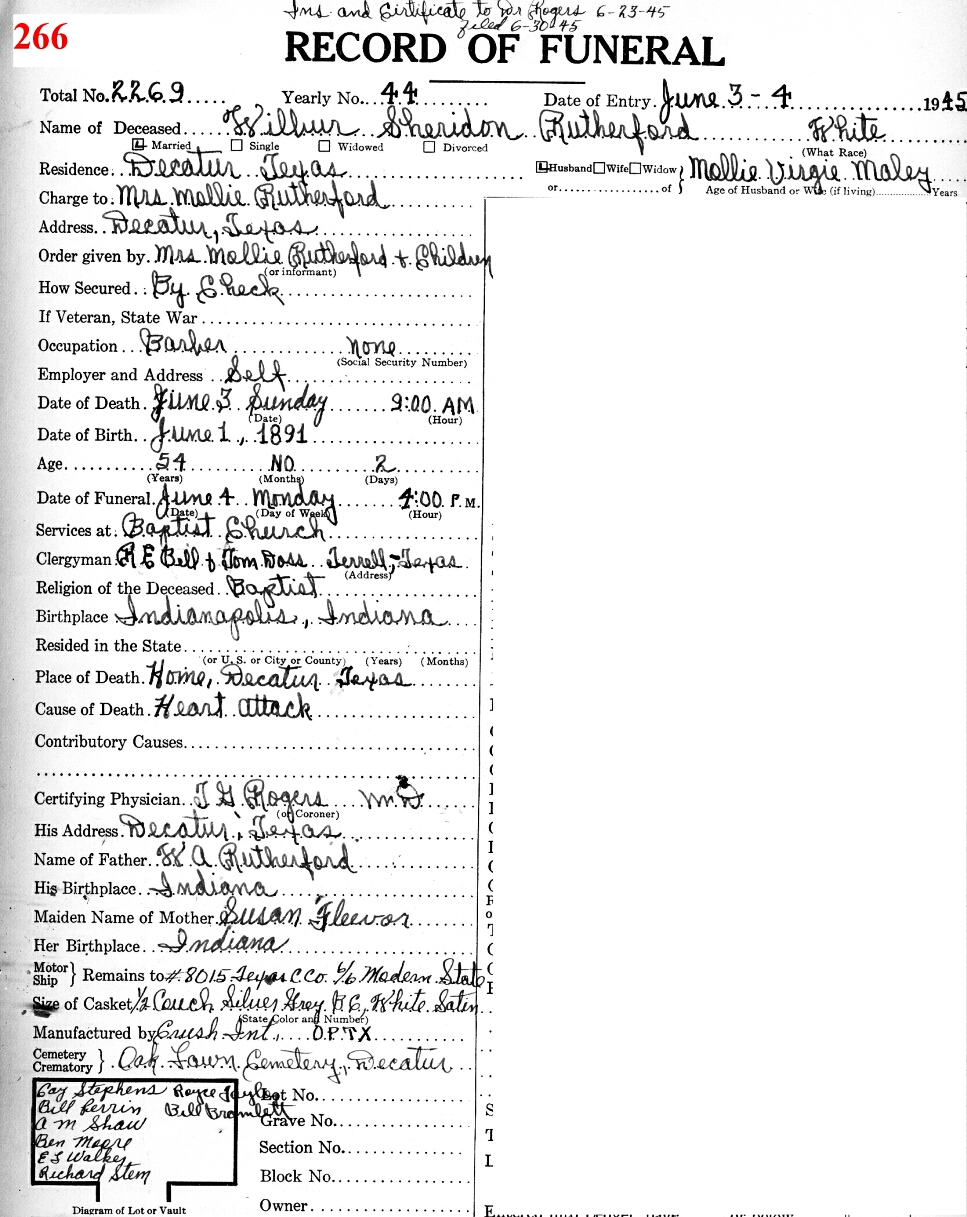 Ins and Certificate to Dr Rogers 6-23-45
filed 6-30-45
266
RECORD OF FUNERAL
Total No. 2269 Yearly No. 44 Date of Entry June 3-4 1945
Name of Deceased Wilbur Sheridon Rutherford White
Married Single Widowed Divorced (What Race)
Residence Decatur Texas Husband Wife Widow } Mollie Virgie Maley
or of } Age of Husband or Wife (if living) Years
Charge to Mrs. Mollie Rutherford
Address Decatur, Texas
Order given by Mrs. Mollie Rutherford + Children
(or informant)
How Secured By Check
If Veteran, State War
Occupation Barber none
(Social Security Number)
Employer and Address Self
Date of Death June 3 Sunday 9:00 AM
(Date) (Hour)
Date of Birth June 1, 1891
Age 54 NO 2
(Years) (Months) (Days)
Date of Funeral June 4 Monday 4:00 P.M.
(Date) (Day of Week) (Hour)
Services at Baptist Church
Clergyman R E Bill + Tom Doss Terrell, Texas
(Address)
Religion of the Deceased Baptist
Birthplace Indianapolis, Indiana
Resided in the State
(or U. S. or City or County) (Years) (Months)
Place of Death Home, Decatur Texas
Cause of Death Heart attack
Contributory Causes
Certifying Physician T G Rogers M.D
(or Coroner)
His Address Decatur, Texas
Name of Father W. A. Rutherford
His Birthplace Indiana
Maiden Name of Mother Susan Fleevor
Her Birthplace Indiana
Motor
Ship } Remains to # 8015 Texas C Co. % Modern State
Size of Casket 1/2 Couch Silver Grey B.C. White Satin
(State Color and Number)
Manufactured by Crush Int. O.P.T.X
Cemetery
Crematory } Oak Lawn Cemetery, Decatur
Gay Stephens Royce Taylor Lot No.
Bill Perrin Bill Bramlett
A M Shaw Grave No.
Ben Moore
E S Walker Section No.
Richard Stem Block No.
Diagram of Lot or Vault Owner